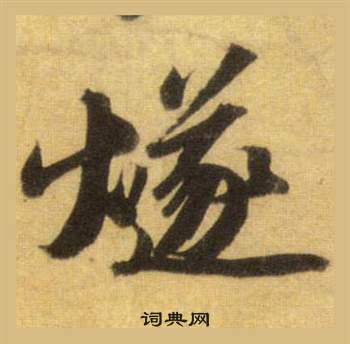 燧
词典网